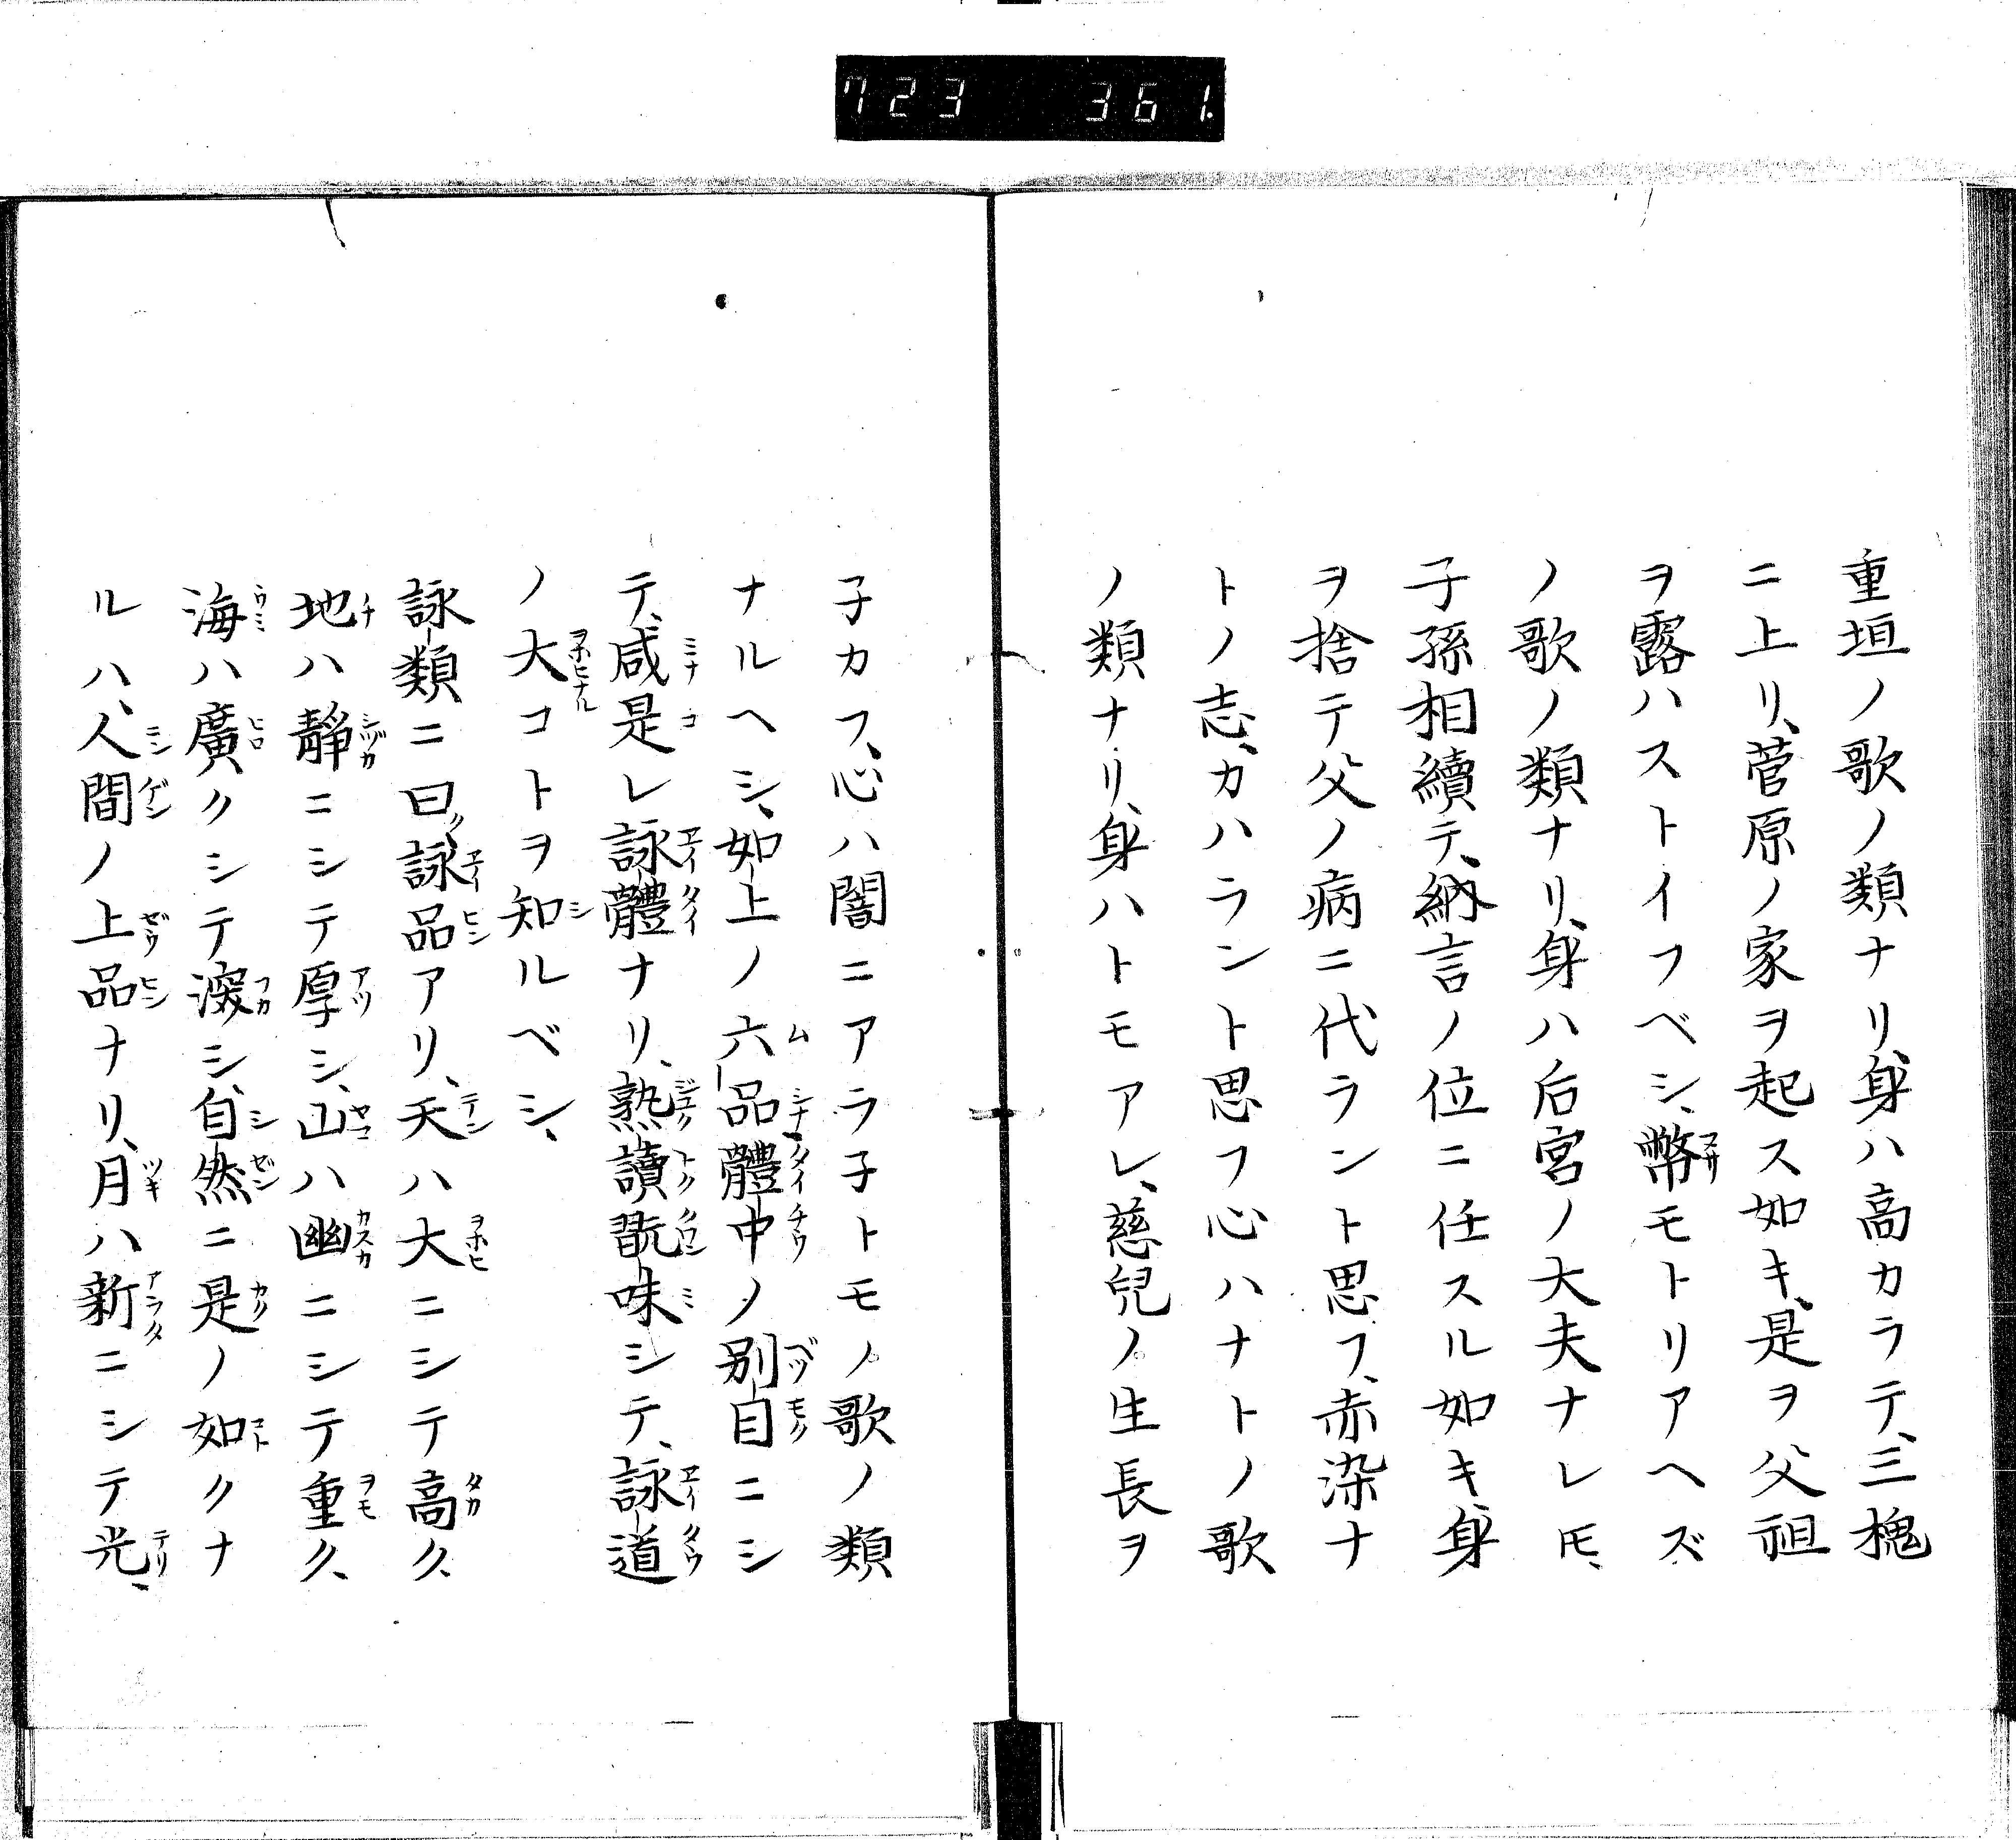 723 361.
重垣ノ歌ノ類ナリ、身ハ高カラテ、三槐
ニ上リ、菅原ノ家ヲ起ス如キ、是ヲ父祖
ヲ露ハストイフベシ、幣モトリアヘズ
ノ歌ノ類ナリ、身ハ后宮ノ大夫ナレ𪜈、
子孫相續テ、納言ノ位ニ任スル如キ、身
ヲ捨テ父ノ病ニ代ラント思フ、赤染ナ
トノ志、カハラント思フ心ハナトノ歌
ノ類ナリ、身ハトモアレ、慈兒ノ生長ヲ
子カフ、心ハ闇ニアラ子トモノ歌ノ類
ナルヘシ、如上ノ六品體中ノ別目ニシ
テ、咸是レ詠體ナリ、熟讀翫味シテ、詠道
ノ大コトヲ知ルベシ、
詠類ニ曰ク、詠品アリ、天ハ大ニシテ高ク、
地ハ靜ニシテ厚シ、山ハ幽ニシテ重ク、
海ハ廣クシテ深シ、自然ニ是ノ如クナ
ルハ、人間ノ上品ナリ、月ハ新ニシテ光、